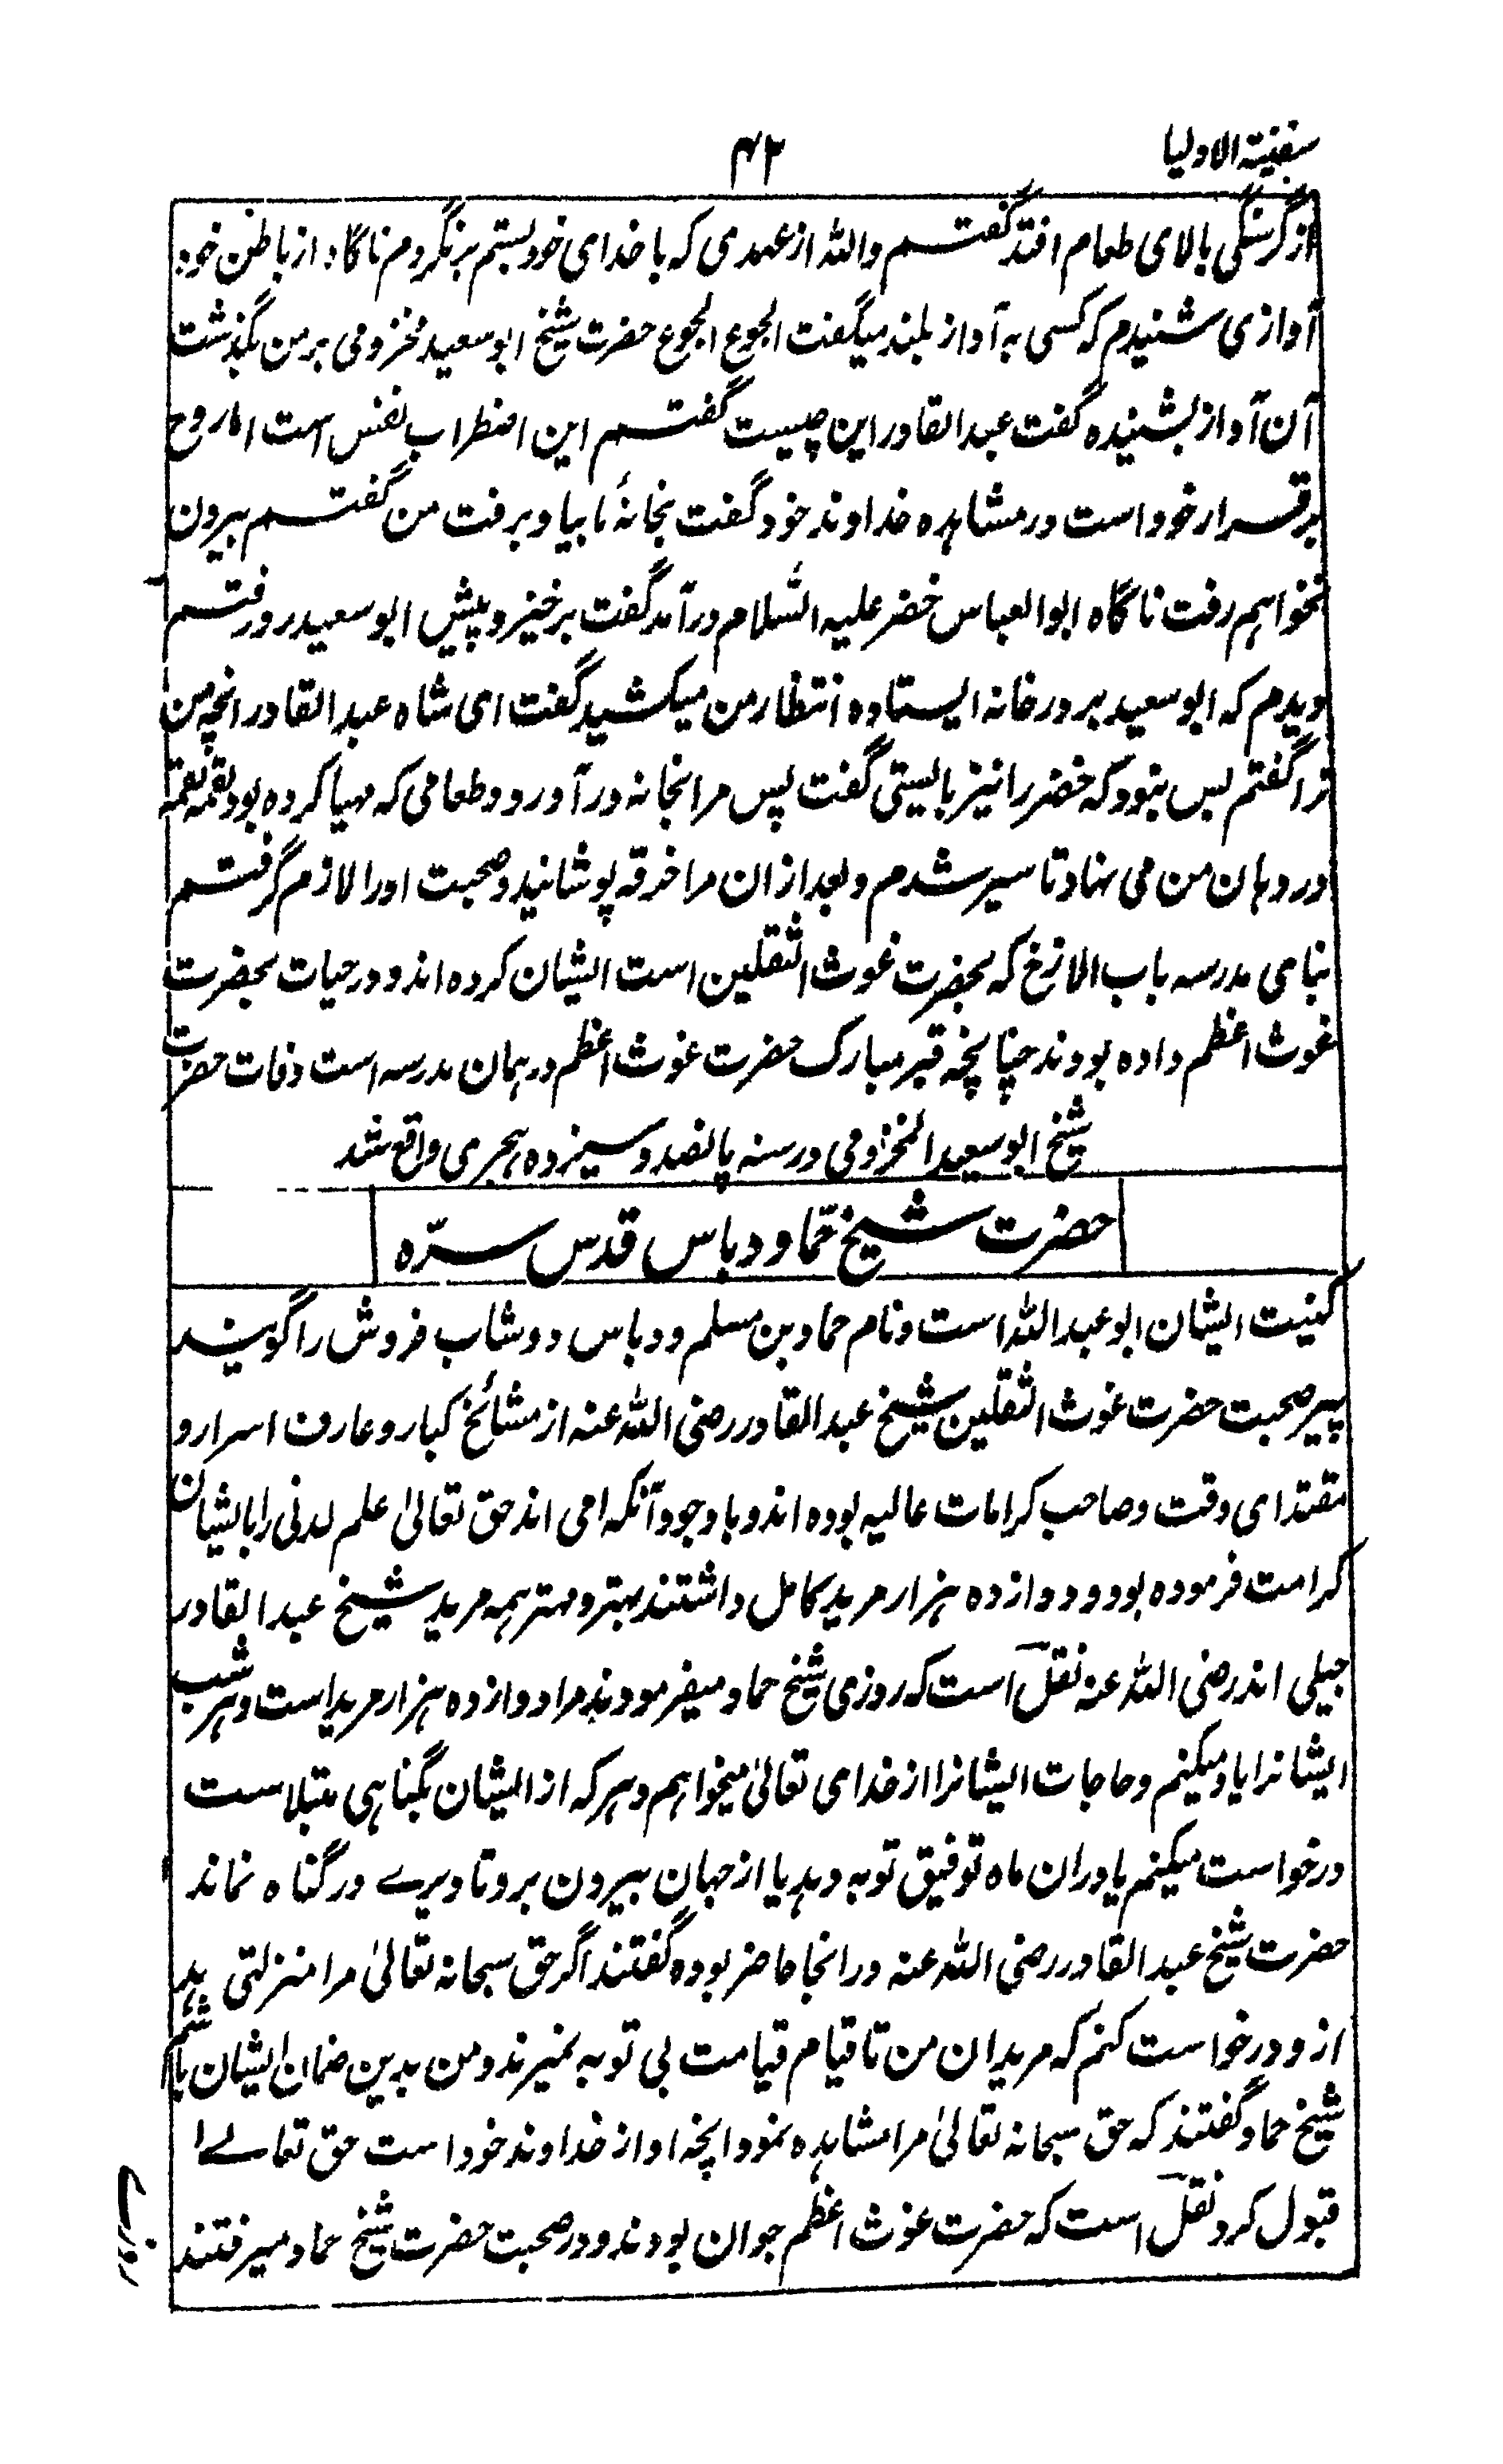 سفینة الاولیا
۴۲
از گرسنگی بالای طعام افتد گفتم والله از عهدی که با خدای خود بستم برنگردم ناگاه از باطن خود
آوازی شنیدم که کسی به آواز بلند میگفت الجوع الجوع حضرت شیخ ابو سعید مخزومی بر من بگذشت
آن آواز بشنیده گفت عبد القادر این چیست گفتم این اضطراب نفس است اما روح
برقرار خود است در مشاهده خداوند خود گفت بخانهٔ ما بیا و برفت من گفتم بیرون
نخواهم رفت ناگاه ابو العباس خضر علیه السّلام درآمد گفت برخیز و پیش ابو سعید رو رفتم
دیدم که ابو سعید بر در خانه ایستاده انتظار من میکشید گفت ای شاه عبد القادر انچه من
ترا گفتم بس نبود که خضر را نیز بایستی گفت پس مرا بخانه در آورد و طعامی که مهیا کرده بود لقمه لقمه
در دهان من می نهاد تا سیر شدم و بعد ازان مرا خرقه پوشانید و صحبت او را لازم گرفتم
بنای مدرسه باب الازخ که بحضرت غوث الثقلین است ایشان کرده اند و در حیات بحضرت
غوث اعظم داده بودند چنانچه قبر مبارک حضرت غوث اعظم در همان مدرسه است وفات حضرت
شیخ ابو سعید المخزومی در سنه پانصد و سیزده هجری واقع شد
حضرت شیخ حمّاد دباس قدس سرّه
کنیت ایشان ابو عبد الله است و نام حماد بن مسلم و دباس دوشاب فروش را گویند
پیر صحبت حضرت غوث الثقلین شیخ عبد القادر رضی الله عنه از مشائخ کبار و عارف اسرار و
مقتدای وقت و صاحب کرامات عالیه بوده اند و با وجود آنکه امی اند حق تعالیٰ علم لدنی را بایشان
کرامت فرموده بود و دوازده هزار مرید کامل داشتند بهتر و مهتر همه مرید شیخ عبد القادر
جیلی اند رضی الله عنه نقل است که روزی شیخ حماد میفرمودند مرا دوازده هزار مرید است و هر شب
ایشانرا یاد میکنم و حاجات ایشانرا از خدای تعالیٰ میخواهم و هر که از ایشان بگناهی مبتلاست
درخواست میکنم یا دران ماه توفیق توبه دهد یا از جهان بیرون برد تا دیرے در گناه نماند
حضرت شیخ عبد القادر رضی الله عنه در انجا حاضر بوده گفتند اگر حق سبحانه تعالیٰ مرا منزلتی بدهد
از و درخواست کنم که مریدان من تا قیام قیامت بی توبه نمیرند و من بدین ضمان ایشان باشم
شیخ حماد گفتند که حق سبحانه تعالیٰ مرا مشاهده نمود انچه او از خداوند خود است حق تعالے
قبول کرد نقل است که حضرت غوث اعظم جوان بودند و در صحبت حضرت شیخ حماد میرفتند
روزے